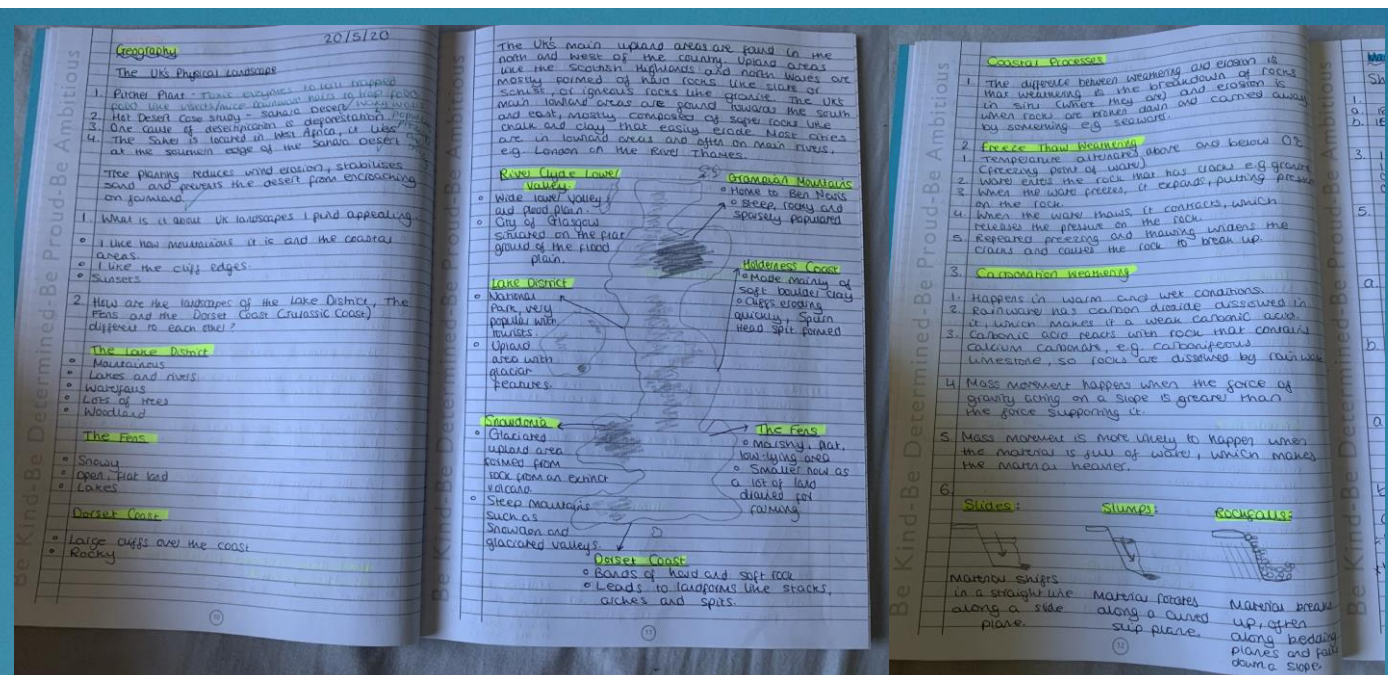 20/5/20
Geography
The UK's Physical Landscape
1. Pitcher Plant - Toxic enzymes to kill trapped
food like insects/mice
2. Hot Desert Case Study - Sahara Desert
3. One cause of desertification is deforestation
4. The Sahel is located in West Africa, it lies
at the southern edge of the Sahara Desert
Tree planting reduces wind erosion, stabilises
sand and prevents the desert from encroaching
on farmland.
1. What is it about UK landscapes I find appealing.
I like how mountainous it is and the coastal
areas.
I like the cliff edges.
Sunsets
2. How are the landscapes of the Lake District, The
Fens and the Dorset Coast (Jurassic Coast)
different to each other?
The Lake District
Mountainous
Lakes and rivers
Waterfalls
Lots of trees
Woodland
The Fens
Snowy
Open, flat land
Lakes
Dorset Coast
Large cliffs over the coast
Rocky
10
Be Kind-Be Determined-Be Proud-Be Ambitious
The UK's main upland areas are found in the
north and west of the country. Upland areas
like the Scottish Highlands and north Wales are
mostly formed of hard rocks like slate or
schist, or igneous rocks like granite. The UK's
main lowland areas are found towards the south
and east, mostly composed of softer rocks like
chalk and clay that easily erode. Most cities
are in lowland areas and often on main rivers,
e.g. London on the River Thames.
River Clyde Lower
Valley
Wide lower valley
and flood plain.
City of Glasgow
situated on the flat
ground of the flood
plain.
Grampian Mountains
Home to Ben Nevis
Steep, rocky and
sparsely populated
Lake District
National
Park, very
popular with
tourists.
Upland
area with
glacial
features.
Holderness Coast
Made mainly of
soft boulder clay
Cliffs eroding
quickly, Spurn
Head spit formed
Snowdonia
Glaciated
upland area
formed from
rock from an extinct
volcano.
Steep mountains
such as
Snowdon and
glaciated valleys.
The Fens
Marshy, flat,
low-lying area
Smaller now as
a lot of land
drained for
farming
Dorset Coast
Bands of hard and soft rock
Leads to landforms like stacks,
arches and spits.
11
Be Kind-Be Determined-Be Proud-Be Ambitious
Coastal Processes
1. The difference between weathering and erosion is
that weathering is the breakdown of rocks
in situ (where they are) and erosion is
when rocks are broken down and carried away
by something e.g. seaward.
2. Freeze Thaw Weathering
1. Temperature alternates above and below 0°C
(freezing point of water)
2. Water enters the rock that has cracks e.g granite
3. When the water freezes, it expands, putting pressure
on the rock.
4. When the water thaws, it contracts, which
releases the pressure on the rock.
5. Repeated freezing and thawing widens the
cracks and causes the rock to break up.
3. Carbonation Weathering
1. Happens in warm and wet conditions.
2. Rainwater has carbon dioxide dissolved in
it, which makes it a weak carbonic acid.
3. Carbonic acid reacts with rock that contains
calcium carbonate, e.g. carboniferous
limestone, so rocks are dissolved by rainwater
4. Mass movement happens when the force of
gravity acting on a slope is greater than
the force supporting it.
5. Mass movement is more likely to happen when
the material is full of water, which makes
the material heavier.
6.
Slides:
Slumps:
Rockfalls:
Material shifts
in a straight line
along a slide
plane.
Material rotates
along a curved
slip plane.
Material breaks
up, often
along bedding
planes and falls
down a slope.
12
Be Kind-Be Determined-Be Proud-Be Ambitious